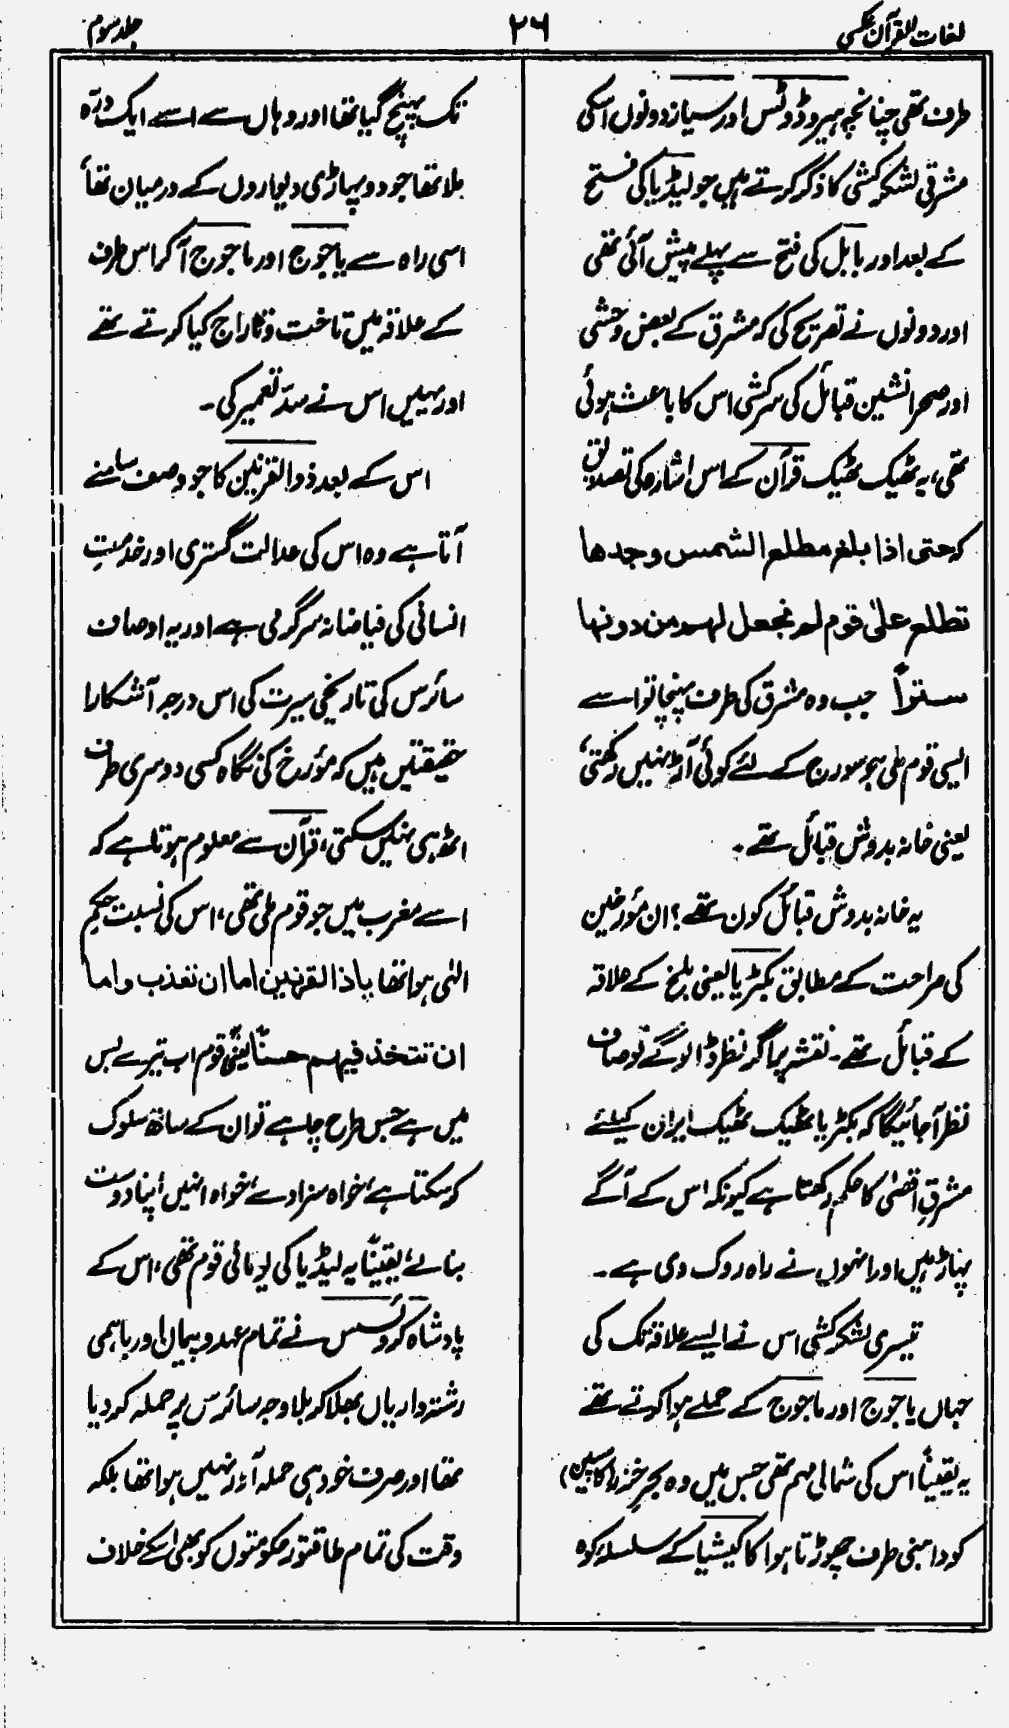 لغات القرآن عکسی
۲۶
جلد سوم
طرف تھی چنانچہ ہیروڈوٹس اور سیاز دونوں اسکی
مشرقی لشکر کشی کا ذکر کرتے ہیں جو لیڈیا کی فتح
کے بعد اور بابل کی فتح سے پہلے پیش آئی تھی
اور دونوں نے تصریح کی کہ مشرق کے بعض وحشی
اور صحرا نشین قبائل کی سرکشی اس کا باعث ہوئی
تھی، یہ ٹھیک ٹھیک قرآن کے اس اشارہ کی تصدیق
کہ حتی اذا بلغ مطلع الشمس وجدھا
تطلع علیٰ قوم لم نجعل لھم من دونھا
ستراً جب وہ مشرق کی طرف پہنچا تو اسے
ایسی قوم ملی جو سورج کے لئے کوئی آڑ نہیں رکھتی
یعنی خانہ بدوش قبائل تھے۔
یہ خانہ بدوش قبائل کون تھے؟ ان مؤرخین
کی صراحت کے مطابق بکٹریا یعنی بلخ کے علاقہ
کے قبائل تھے۔ نقشہ پر اگر نظر ڈالو گے تو صاف
نظر آجائیگا کہ بکٹریا ٹھیک ٹھیک ایران کیلئے
مشرقِ اقصیٰ کا حکم رکھتا ہے کیونکہ اس کے آگے
پہاڑ ہیں اور انہوں نے راہ روک دی ہے۔
تیسری لشکر کشی اس نے ایسے علاقہ تک کی
جہاں یاجوج اور ماجوج کے حملے ہوا کرتے تھے
یہ یقیناً اس کی شمالی مہم تھی جس میں وہ بحر خزر (کاسپین)
کو داہنی طرف چھوڑتا ہوا کاکیشیا کے سلسلۂ کوہ
تک پہنچ گیا تھا اور وہاں سے اسے ایک درّہ
ملا تھا جو دو پہاڑی دیواروں کے درمیان تھا
اسی راہ سے یاجوج اور ماجوج آکر اس طرف
کے علاقہ میں تاخت و تاراج کیا کرتے تھے
اور یہیں اس نے سدّ تعمیر کی۔
اس کے بعد ذوالقرنین کا جو وصف سامنے
آتا ہے وہ اس کی عدالت گستری اور خدمتِ
انسانی کی فیاضانہ سرگرمی ہے اور یہ اوصاف
سائرس کی تاریخی سیرت کی اس درجہ آشکارا
حقیقتیں ہیں کہ مؤرخ کی نگاہ کسی دوسری طرف
اٹھ ہی نہیں سکتی، قرآن سے معلوم ہوتا ہے کہ
اسے مغرب میں جو قوم ملی تھی، اس کی نسبت حکم
الٰہی ہوا تھا یاذا القرنین اما ان تعذب واما
ان تتخذ فیھم حسناً یعنی قوم اب تیرے بس
میں ہے جس طرح چاہے تو ان کے ساتھ سلوک
کرسکتا ہے، خواہ سزا دے، خواہ انہیں اپنا دوست
بنالے، یقیناً یہ لیڈیا کی یونانی قوم تھی، اس کے
پادشاہ کروئسس نے تمام عہد و پیمان اور باہمی
رشتہ داریاں بھلا کر بلا وجہ سائرس پر حملہ کردیا
تھا اور صرف خود ہی حملہ آور نہیں ہوا تھا بلکہ
وقت کی تمام طاقتور حکومتوں کو بھی اسکے خلاف